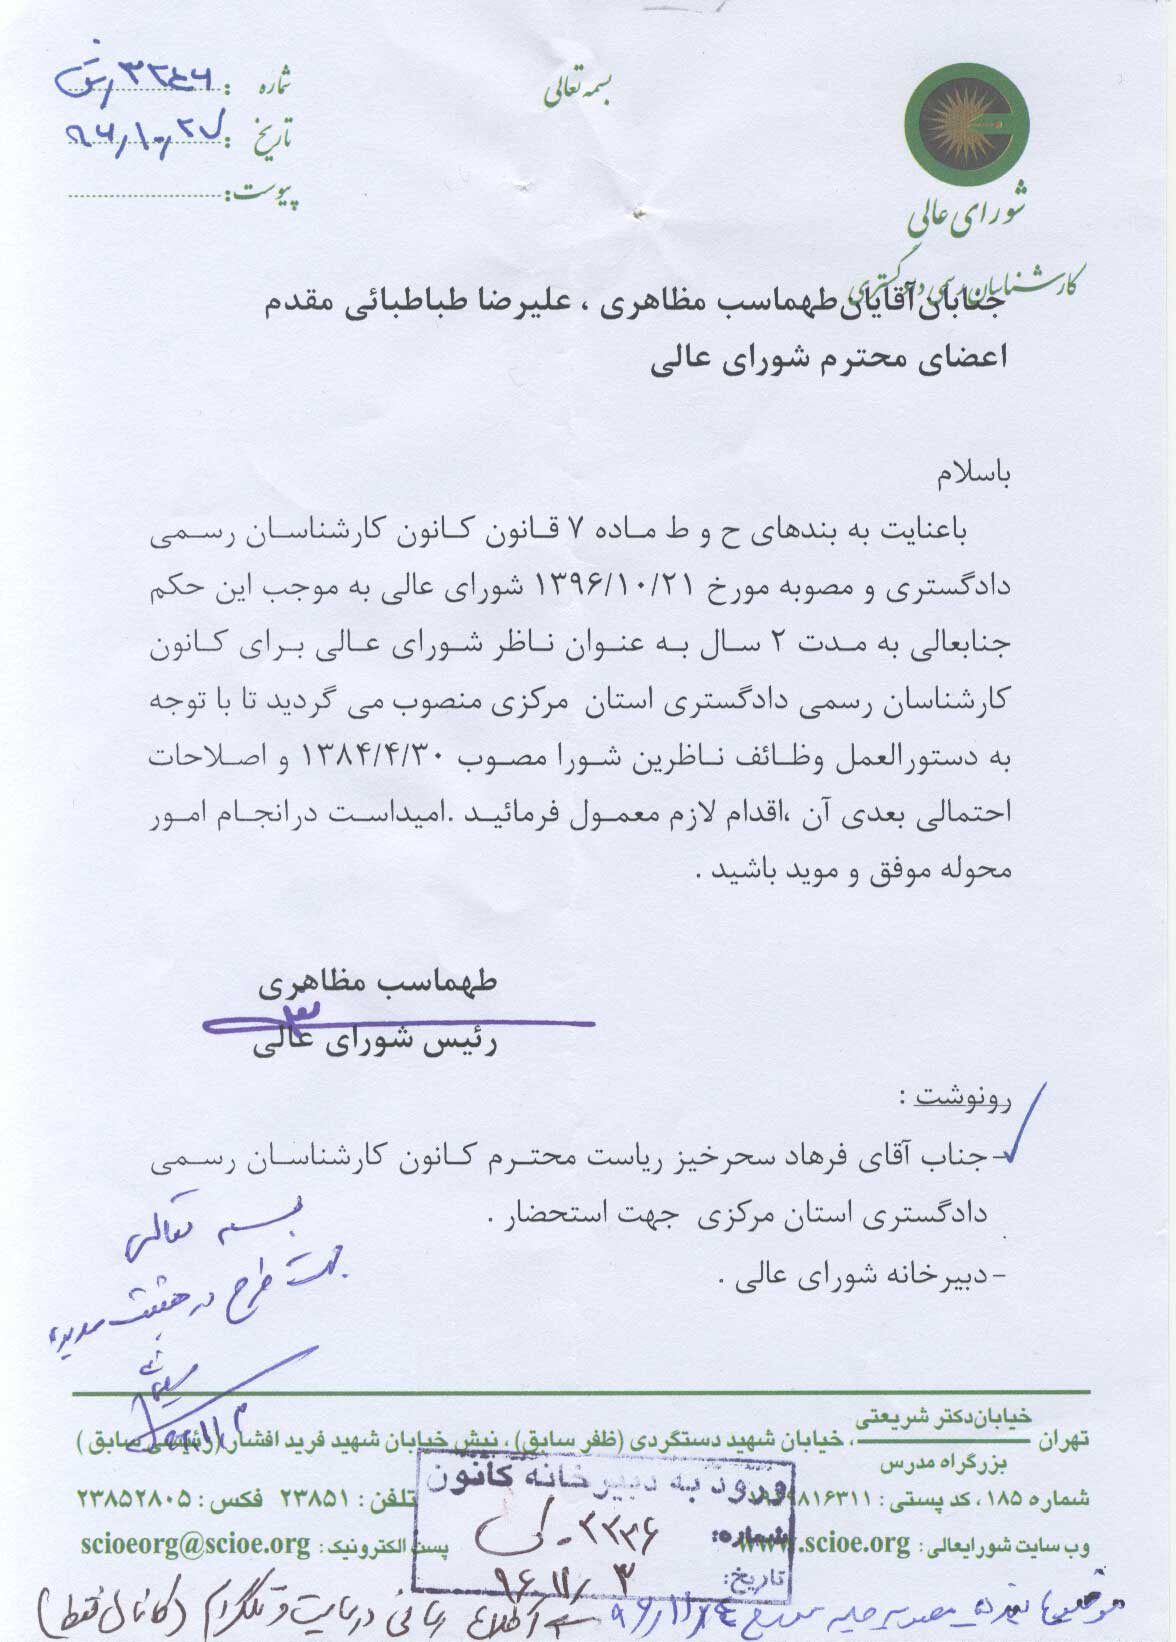 بسمه تعالی
شماره : ۳۲۴۶رش
تاریخ : ۹۶٫۱۰٫۲۷
پیوست:
شورای عالی
کارشناسان رسمی دادگستری
جنابان آقایان طهماسب مظاهری ، علیرضا طباطبائی مقدم
اعضای محترم شورای عالی
باسلام
باعنایت به بندهای ح و ط ماده ۷ قانون کانون کارشناسان رسمی
دادگستری و مصوبه مورخ ۱۳۹۶/۱۰/۲۱ شورای عالی به موجب این حکم
جنابعالی به مدت ۲ سال به عنوان ناظر شورای عالی برای کانون
کارشناسان رسمی دادگستری استان مرکزی منصوب می گردید تا با توجه
به دستورالعمل وظائف ناظرین شورا مصوب ۱۳۸۴/۴/۳۰ و اصلاحات
احتمالی بعدی آن ،اقدام لازم معمول فرمائید .امیداست درانجام امور
محوله موفق و موید باشید .
طهماسب مظاهری
رئیس شورای عالی
رونوشت :
-جناب آقای فرهاد سحرخیز ریاست محترم کانون کارشناسان رسمی
دادگستری استان مرکزی جهت استحضار .
-دبیرخانه شورای عالی .
بسمه تعالی
جهت طرح در هیئت مدیره
تهران خیابان دکتر شریعتی
بزرگراه مدرس ، خیابان شهید دستگردی (ظفر سابق) ، نبش خیابان شهید فرید افشار( سابق )
شماره ۱۸۵ ، کد پستی : ۱۹۱۹۸۱۶۳۱۱ تلفن : ۲۳۸۵۱ فکس : ۲۳۸۵۲۸۰۵
وب سایت شورایعالی : www.scioe.org پست الکترونیک : scioeorg@scioe.org
ورود به دبیرخانه کانون
شماره: ۲۲۳۶
تاریخ: ۹۶/۱۱/۳
اطلاع رسانی در سایت و تلگرام (کانال فقط)